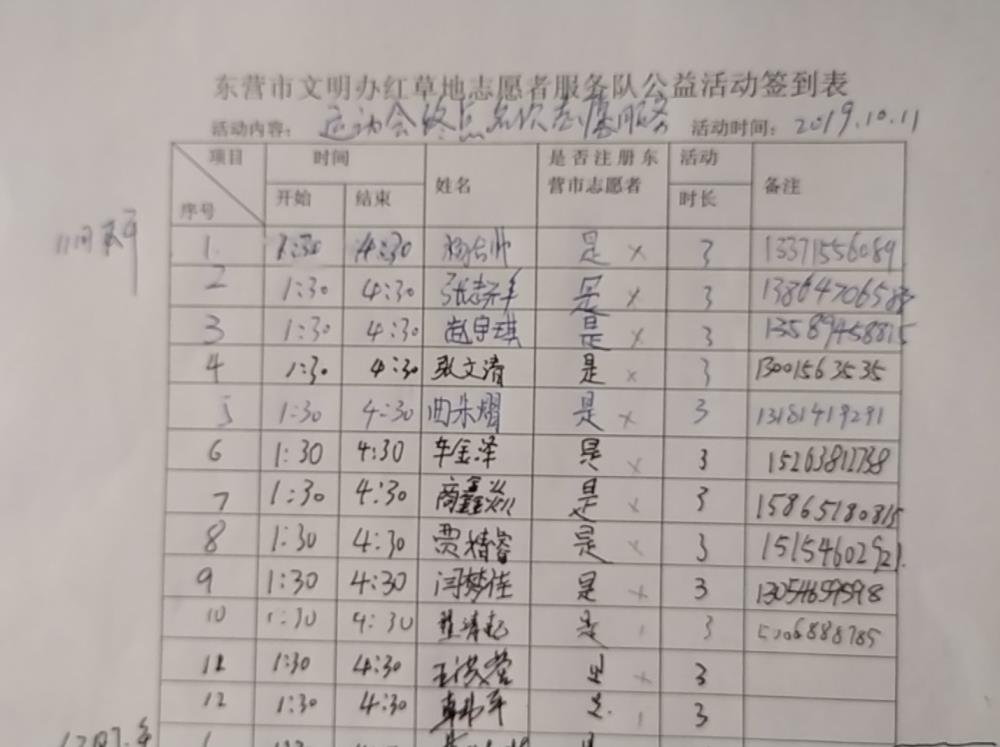 东营市文明办红草地志愿者服务队公益活动签到表
活动内容： 运动会终点名次志愿服务 活动时间：2019.10.11
项目 序号 时间 姓名 是否注册东营市志愿者 活动时长 备注
开始 结束
1. 1:30 4:30 是 × 3 13371556089
2 1:30 4:30 是 × 3
3 1:30 4:30 赵宇琪 是 × 3 13589458815
4 1:30 4:30 张文清 是 × 3 13001563535
5 1:30 4:30 曲朱熠 是 × 3 13181419291
6 1:30 4:30 车金泽 是 × 3 15263812738
7 1:30 4:30 商鑫 是 × 3 15865180815
8 1:30 4:30 贾精睿 是 × 3 15154602921
9 1:30 4:30 闫梦佳 是 × 3
10 1:30 4:30 是 3
11 1:30 4:30 是 × 3
12 1:30 4:30 是 3